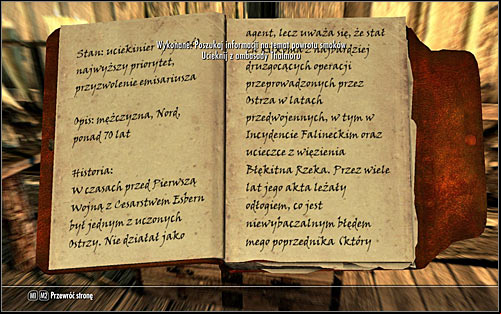 Stan: uciekinier
najwyższy priorytet,
przyzwolenie emisariusza
Opis: mężczyzna, Nord,
ponad 70 lat
Historia:
W czasach przed Pierwszą
Wojną z Cesarstwem Esbern
był jednym z uczonych
Ostrzy. Nie działał jako
agent, lecz uważa się, że stał
najbardziej
druzgocących operacji
przeprowadzonych przez
Ostrza w latach
przedwojennych, w tym w
Incydencie Falineckim oraz
ucieczce z więzienia
Błękitna Rzeka. Przez wiele
lat jego akta leżały
odłogiem, co jest
niewybaczalnym błędem
mego poprzednika (który
Wykonane: Poszukaj informacji na temat powrotu smoków
Ucieknij z ambasady Thalmoru
M1 M2 Przewróć stronę